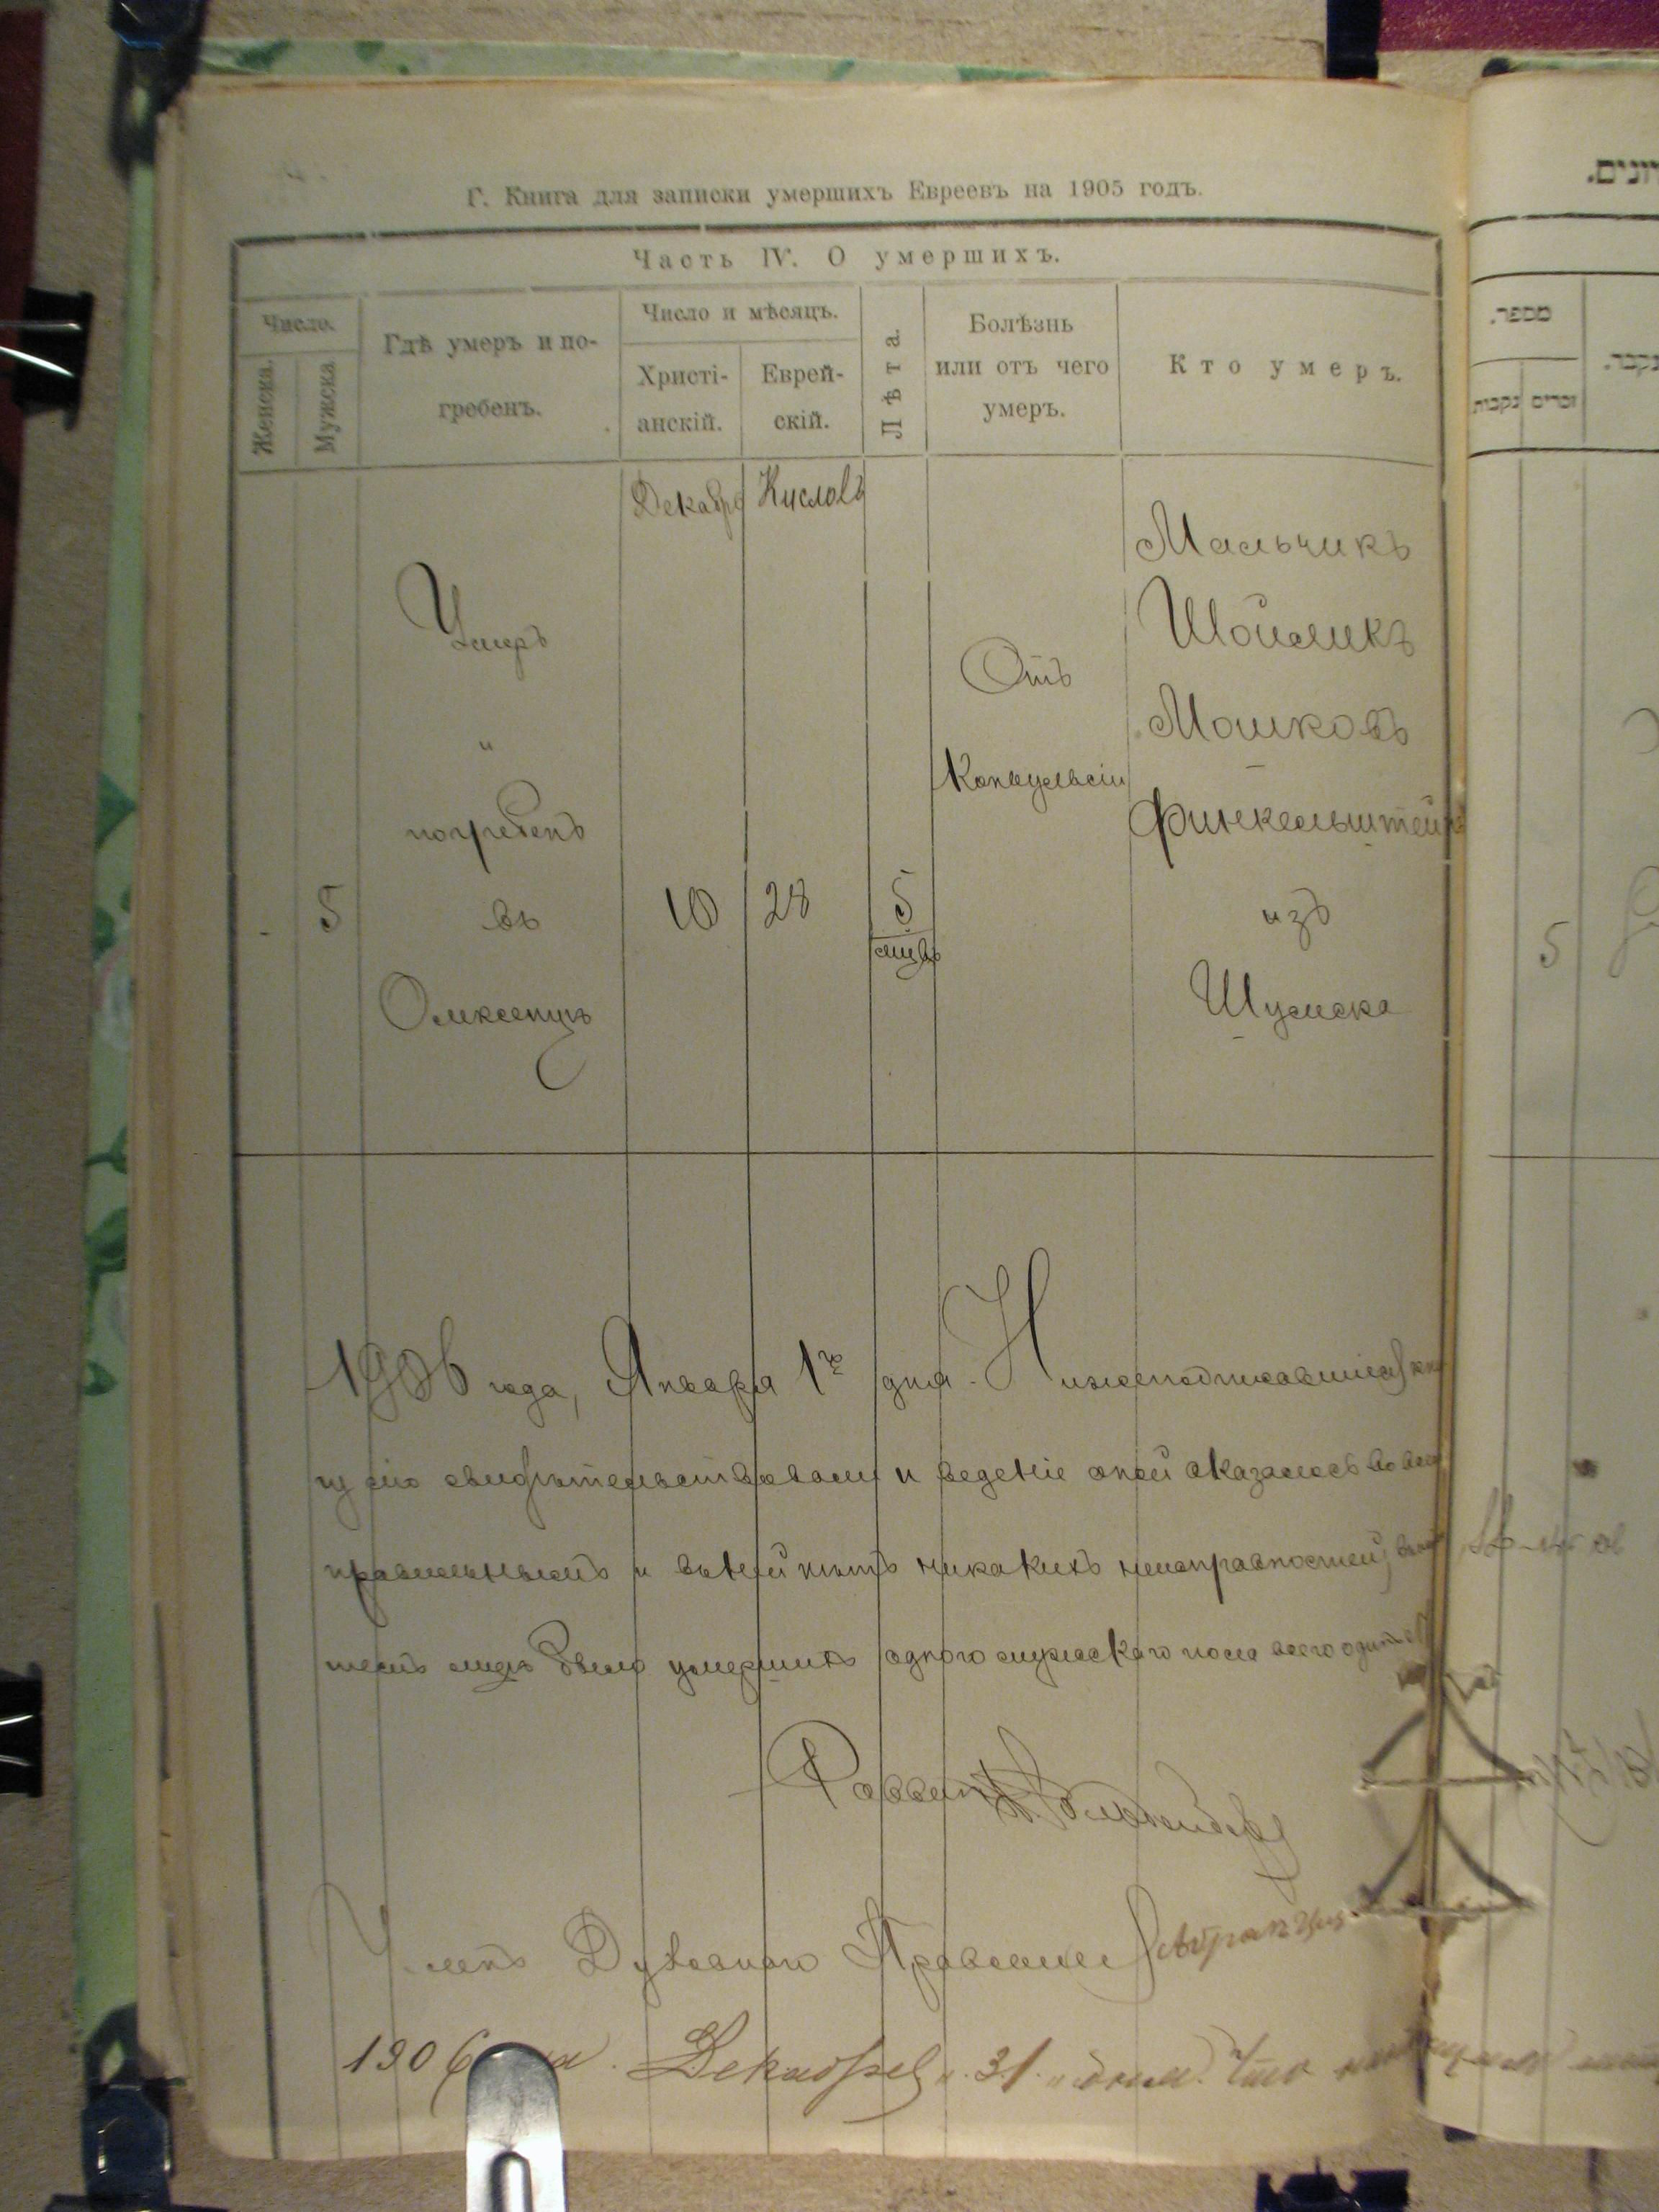 Г. Книга для записки умершихъ Евреевъ на 1905 годъ.
Часть IV. О умершихъ.
Число.
Женска.
Мужска
Гдѣ умеръ и по-
гребенъ.
Число и мѣсяцъ.
Христі-
анскій.
Еврей-
скій.
Лѣта.
Болѣзнь
или отъ чего
умеръ.
Кто умеръ.
5
Умеръ
и
погребенъ
въ
Олексенцѣ
Декабря
10
Кислевъ
28
5
мцвъ
Отъ
Конвульсіи
Мальчикъ
Шойликъ
Мошковъ
Финкельштейнъ
изъ
Шумска
1906 года, Января 1го дня. Нижеподписавшіеся кни
гу сію свидѣтельствовали и веденіе оной оказалось во всемъ
правильнымъ и въ ней нѣтъ никакихъ неисправностей,
месяцъ было умершихъ одного мужескаго пола всего одинъ
Раввинъ
Членъ Духовного Правления
1906 Декабря 31 дня. Что
מספר.
זכרים
נקבות
5